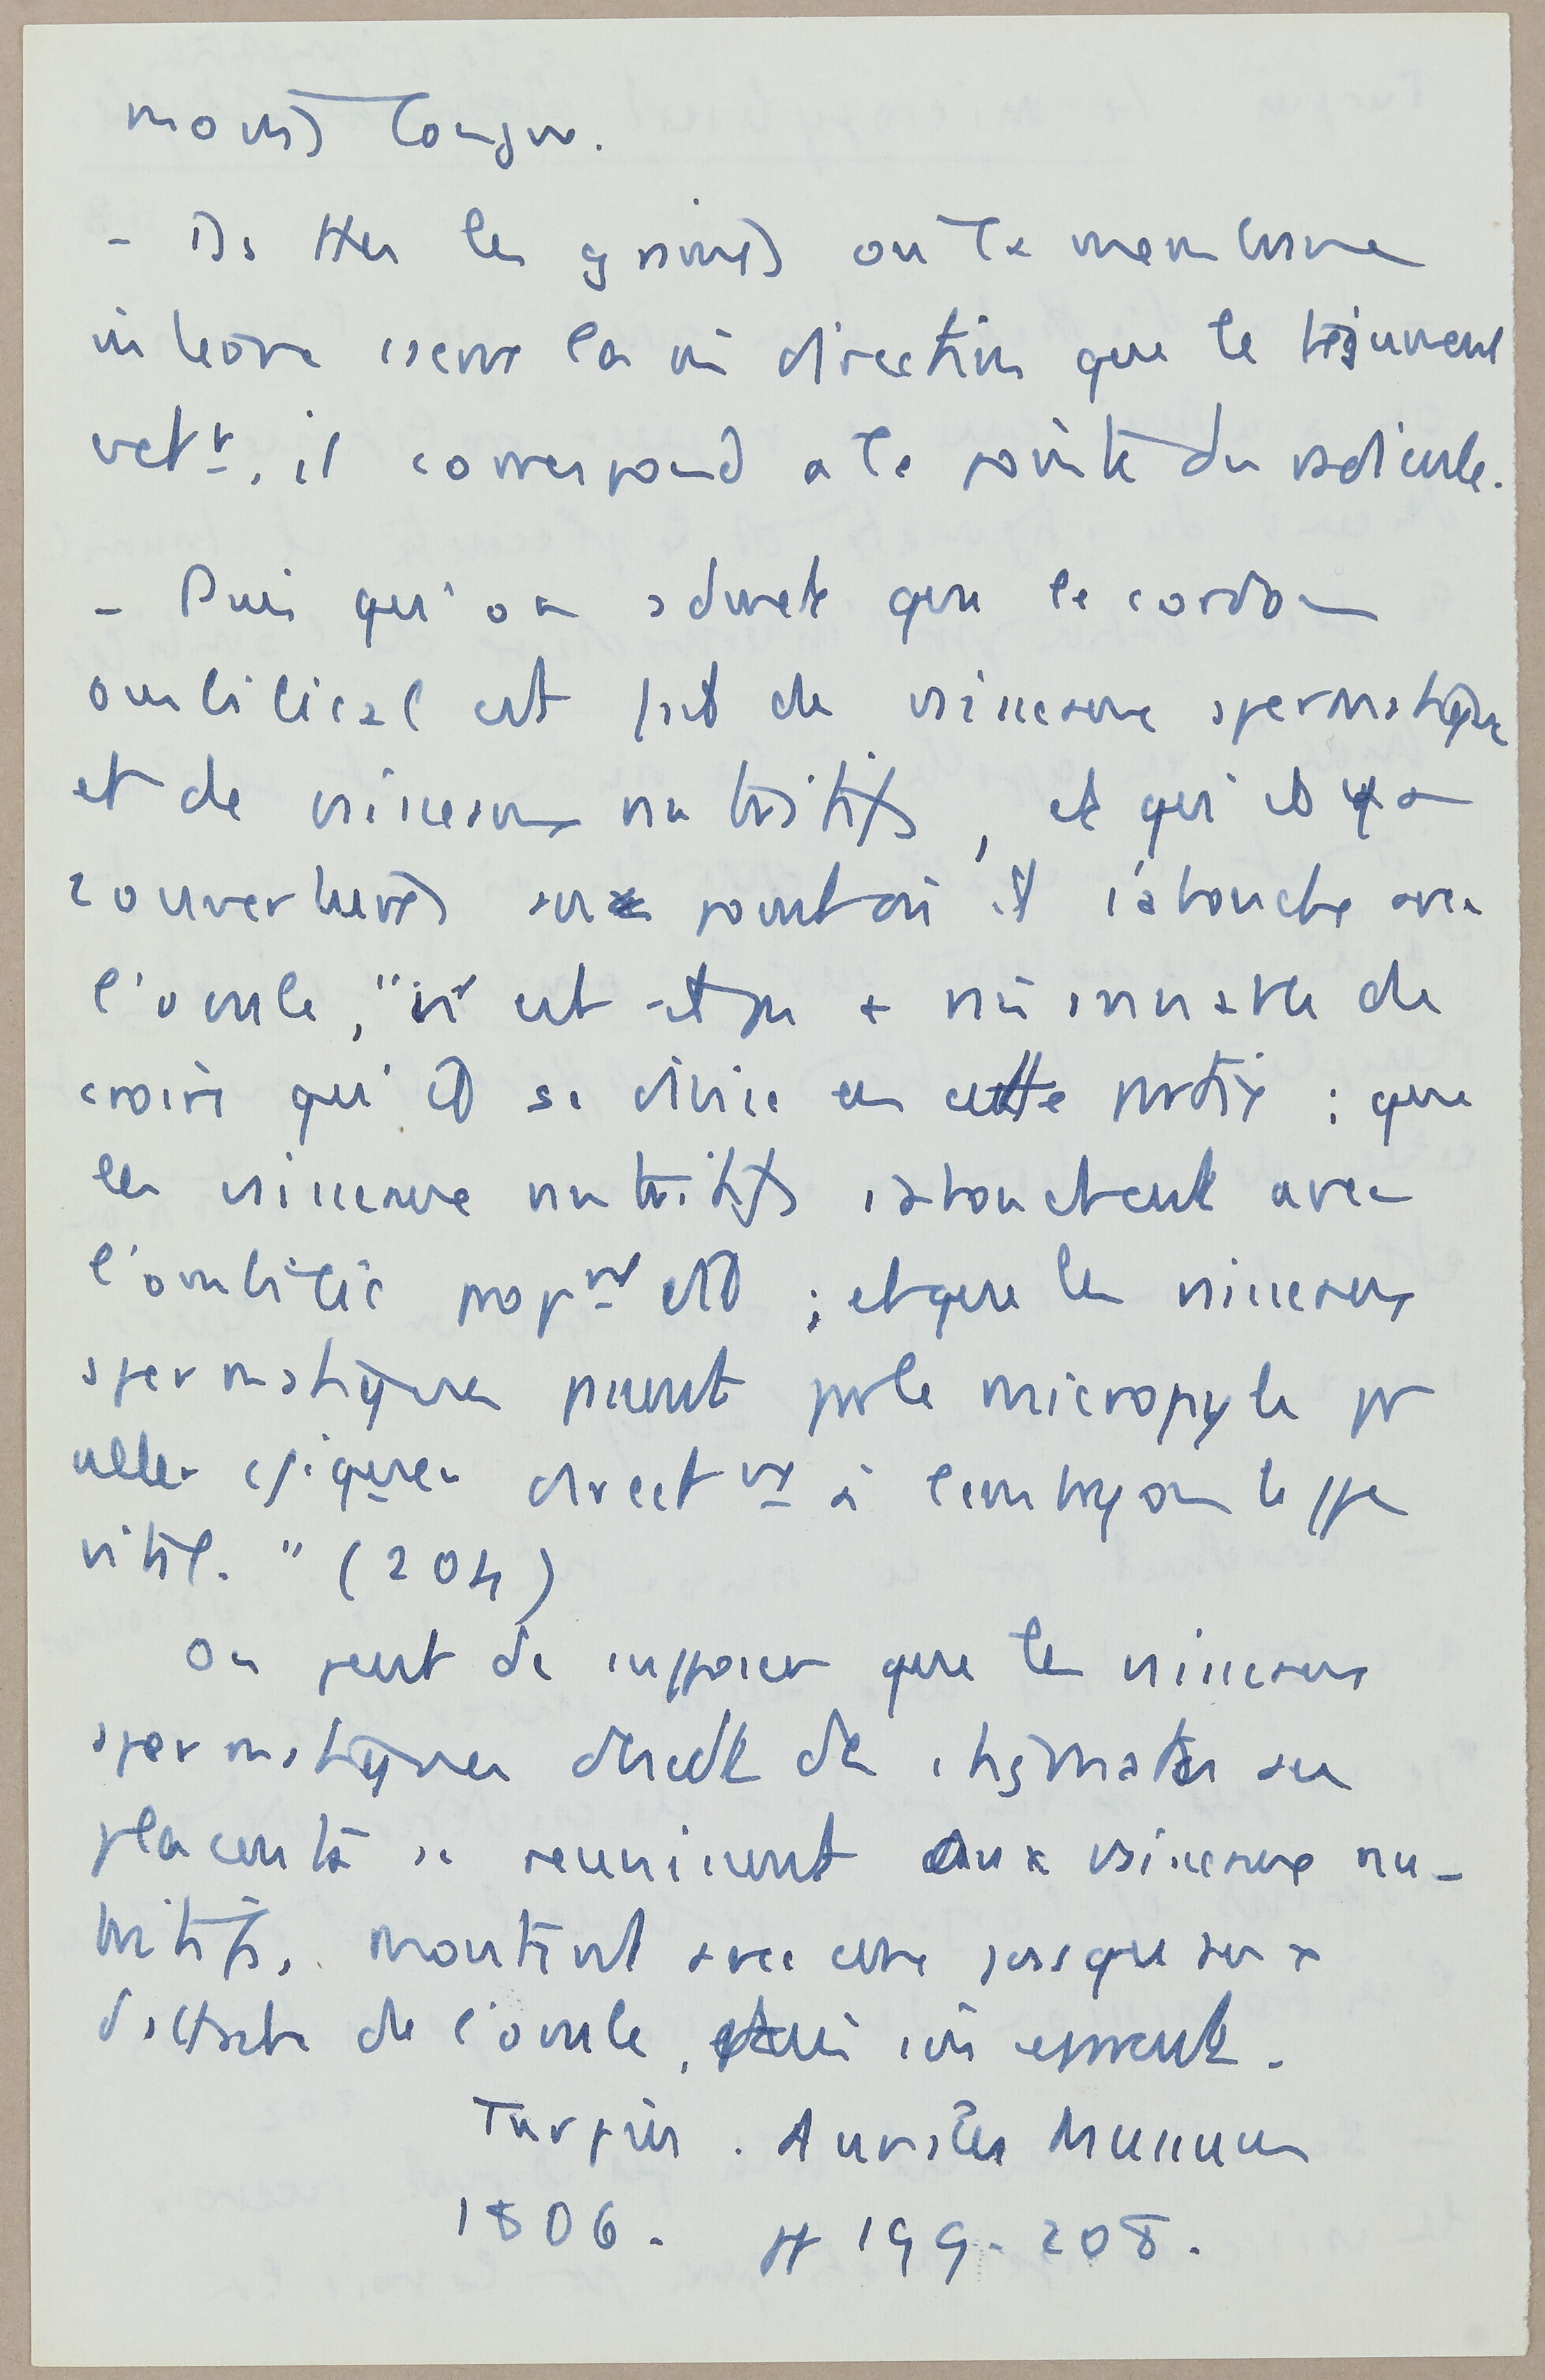 moins longue.
- Ds ttes les graines où la membrane
interne suit la m̂ direction que le tégument
ext<sup>r</sup>, il correspond à la pointe du radicule.
- Puis qu'on admet que le cordon
ombilical est fait de vaisseaux spermatiques
et de vaisseaux nutritifs, et qu'il y a
2 ouvertures au point où il s'abouche avec
l'ovule, "il est
croire qu'il se divise en cette partie : que
les vaisseaux nutritifs s'abouchent avec
l'ombilic prop<sup>nt</sup> dit ; et que les vaisseaux
spermatiques passent par le micropyle pr
aller directnt à l'embryon le
vital." (204)
On peut dc supposer que les vaisseaux
spermatiques descdt du stigmate au
placenta se réunissent aux vaisseaux nu-
tritifs, montent avec eux jusque aux
de l'ovule,
Turpin. Annales Museum
1806. pp 199-208.